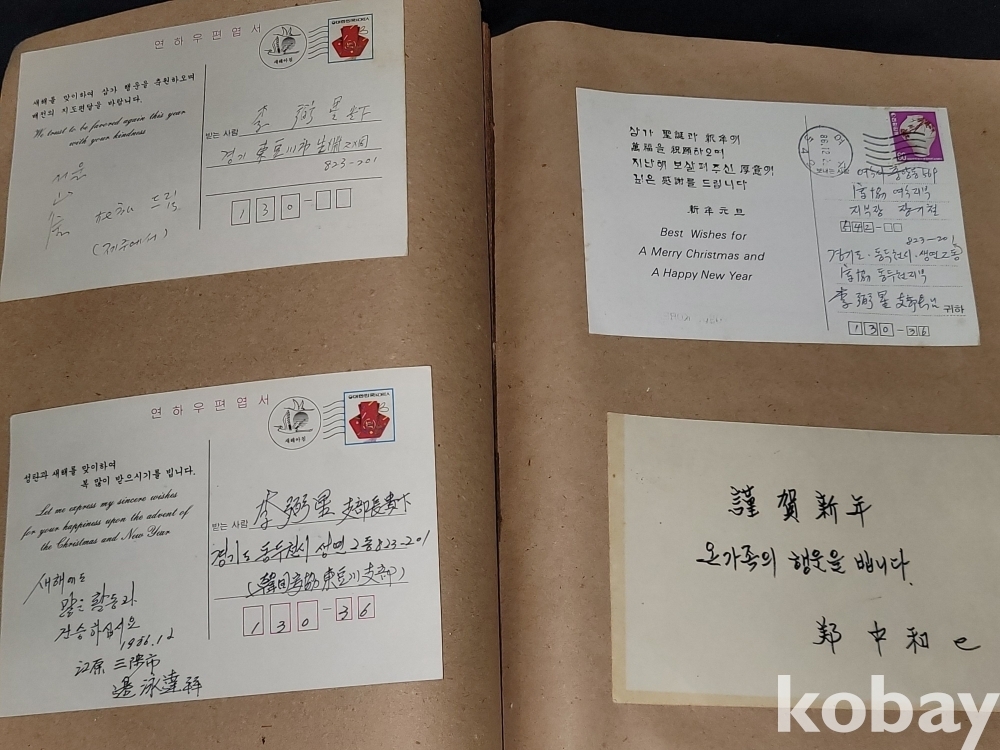 연하우편엽서
새해아침
새해를 맞이하여 삼가 행운을 축원하오며
배전의 지도편달을 바랍니다.
We trust to be favored again this year
with your kindness
받는 사람 李 弼 星
경기 東豆川市
823-201
130-
서울
드림
(제주에서)
연하우편엽서
새해아침
성탄과 새해를 맞이하여
복 많이 받으시기를 빕니다.
Let me express my sincere wishes
for your happiness upon the advent of
the Christmas and New Year
받는 사람 李弼星 支部長
경기도 동두천시 생연2동 823-201
東豆川支部)
130-36
새해에도
많은 활동과
건승하십시요
1986.12
江原 三陟市
삼가 聖誕과 新年에
萬福을 祝願하오며
지난해 보살펴주신 厚意에
깊은 感謝를 드립니다
新年元旦
Best Wishes for
A Merry Christmas and
A Happy New Year
지부장
823-201
경기도·동두천시·생연2동
동두천지부
李弼星 支部長님 귀하
130-36
謹賀新年
온가족의 행운을 빕니다.
鄭中和
kobay